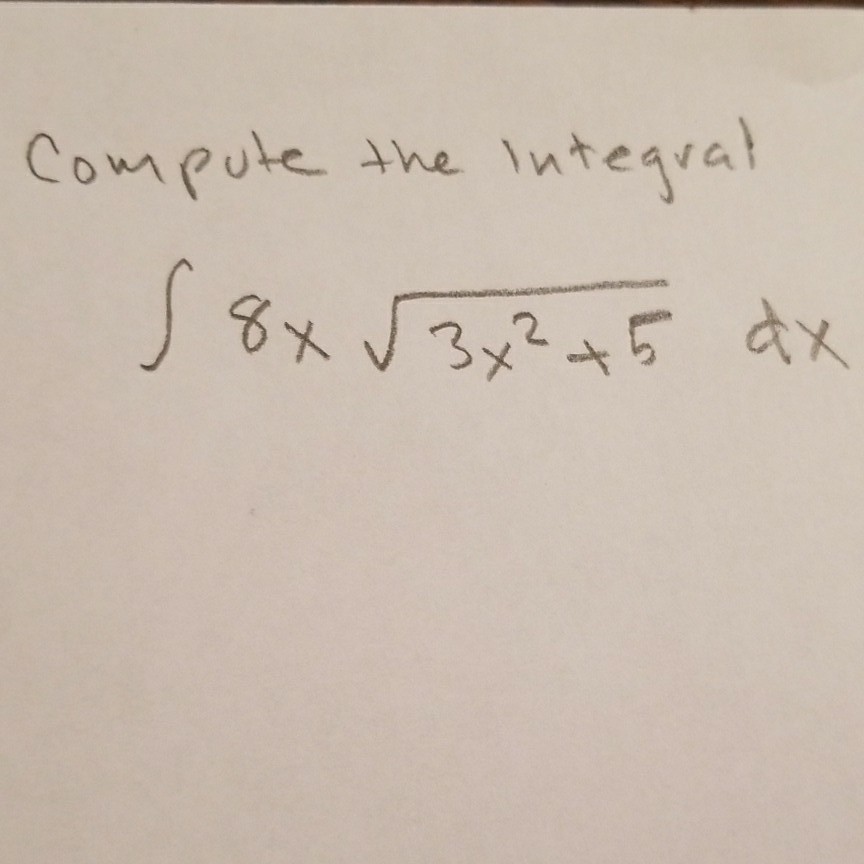 Compute the Integral
∫ 8x √(3x²+5) dx